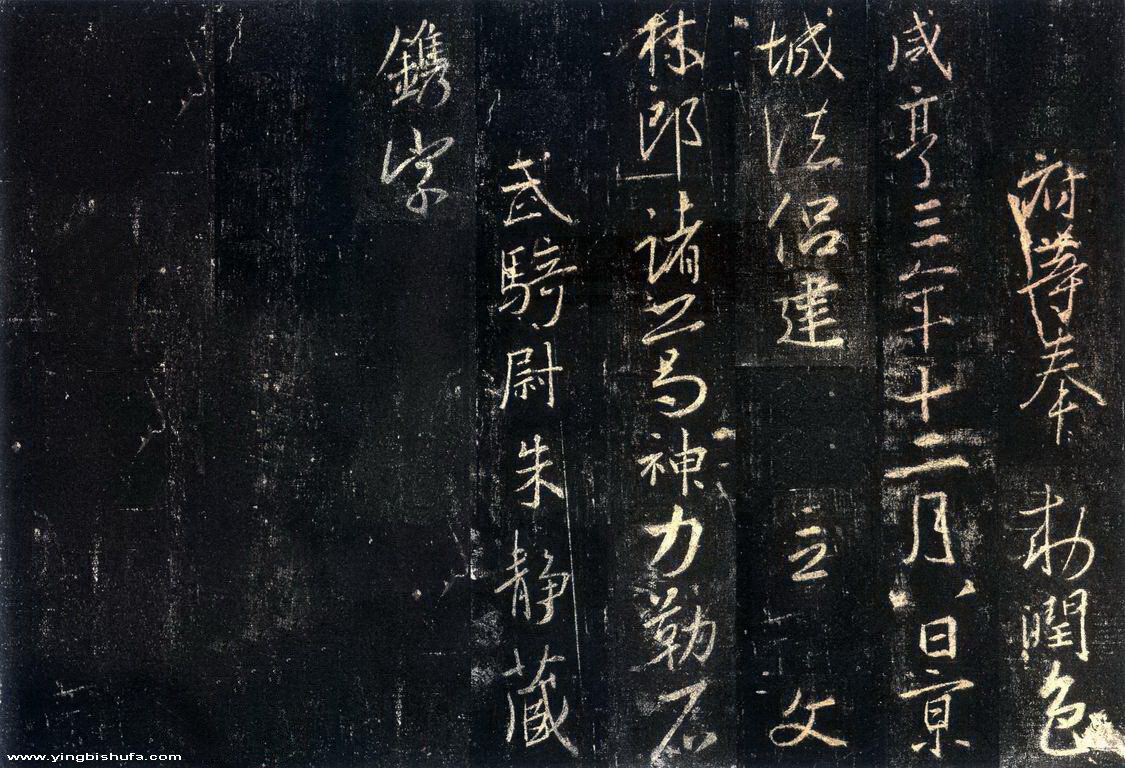 府等奉 勅潤色
咸亨三年十二月八日京
城法侶建 立 文
林郎諸葛神力勒石
武騎尉朱静藏
鐫字
www.yingbishufa.com